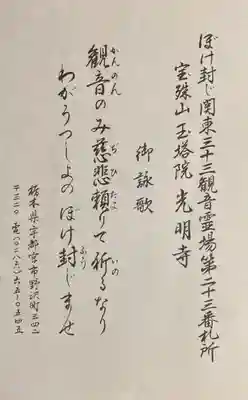 ぼけ封じ関東三十三観音霊場第二十三番札所
宝珠山玉塔院光明寺
御詠歌
観音のみ慈悲頼りて祈るなり
わがうつしよのぼけ封じませ
栃木県宇都宮市野沢町三四二
〒三二〇 電(〇二八六)六五-〇五四五